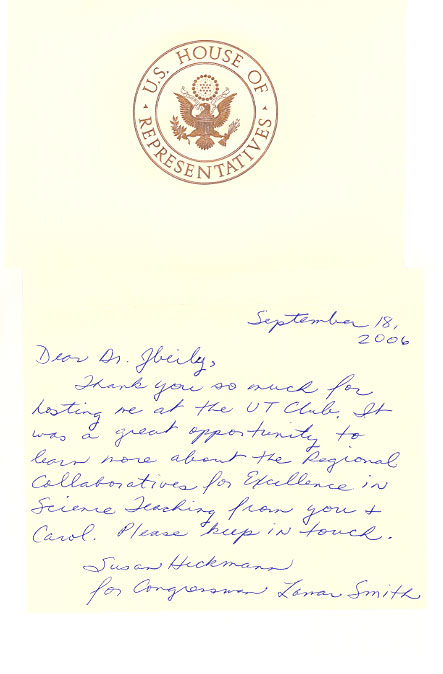 U.S. HOUSE OF
REPRESENTATIVES
September 18,
2006
Dear Dr. Jbeily,
Thank you so much for
hosting me at the UT Club. It
was a great opportunity to
learn more about the Regional
Collaboratives for Excellence in
Science Teaching from you +
Carol. Please keep in touch.
Susan Heckmann
for Congressman Lamar Smith